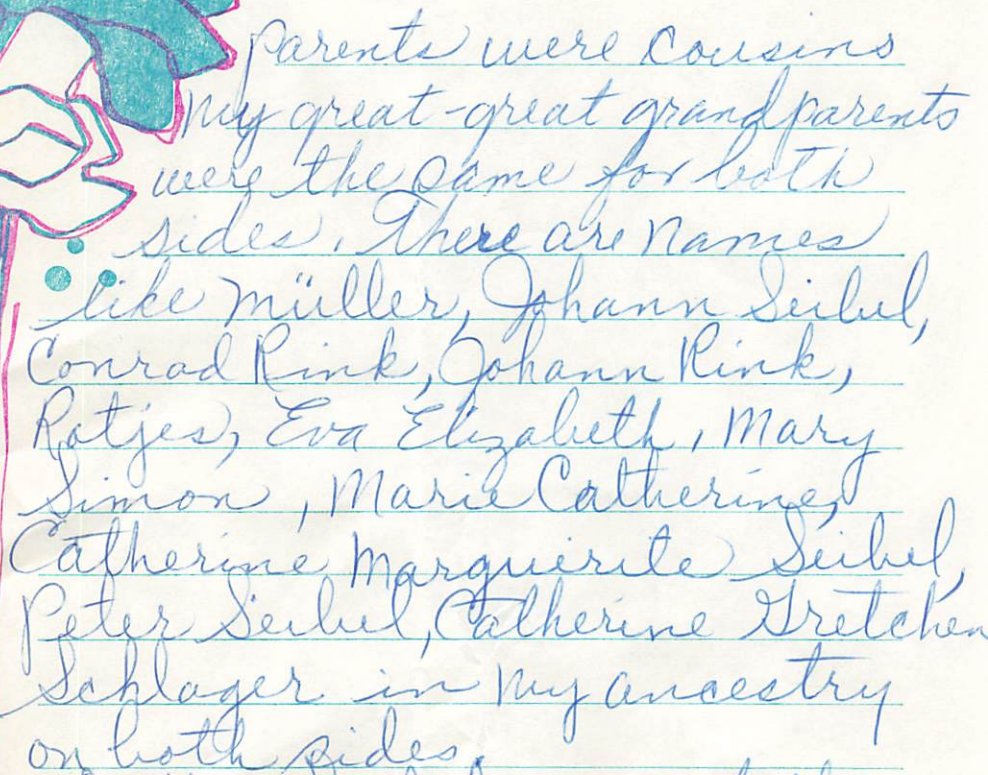 parents were cousins
My great-great grandparents
were the same for both
sides. There are names
like Müller, Johann Seibel,
Conrad Rink, Johann Rink,
Rotjes, Eva Elizabeth, Mary
Simon, Marie Catherine,
Catherine Marguerite Seibel,
Peter Seibel, Catherine Gretchen
Schlager in my ancestry
on both sides.